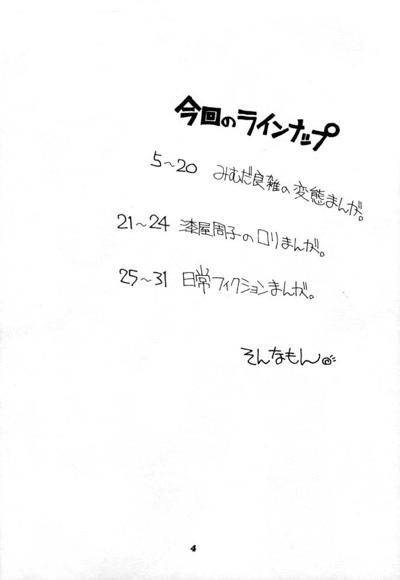 今回のラインナップ
5〜20 みむだ良雑の変態まんが。
21〜24 漆屋周子のロリまんが。
25〜31 日常フィクションまんが。
そんなもん
4